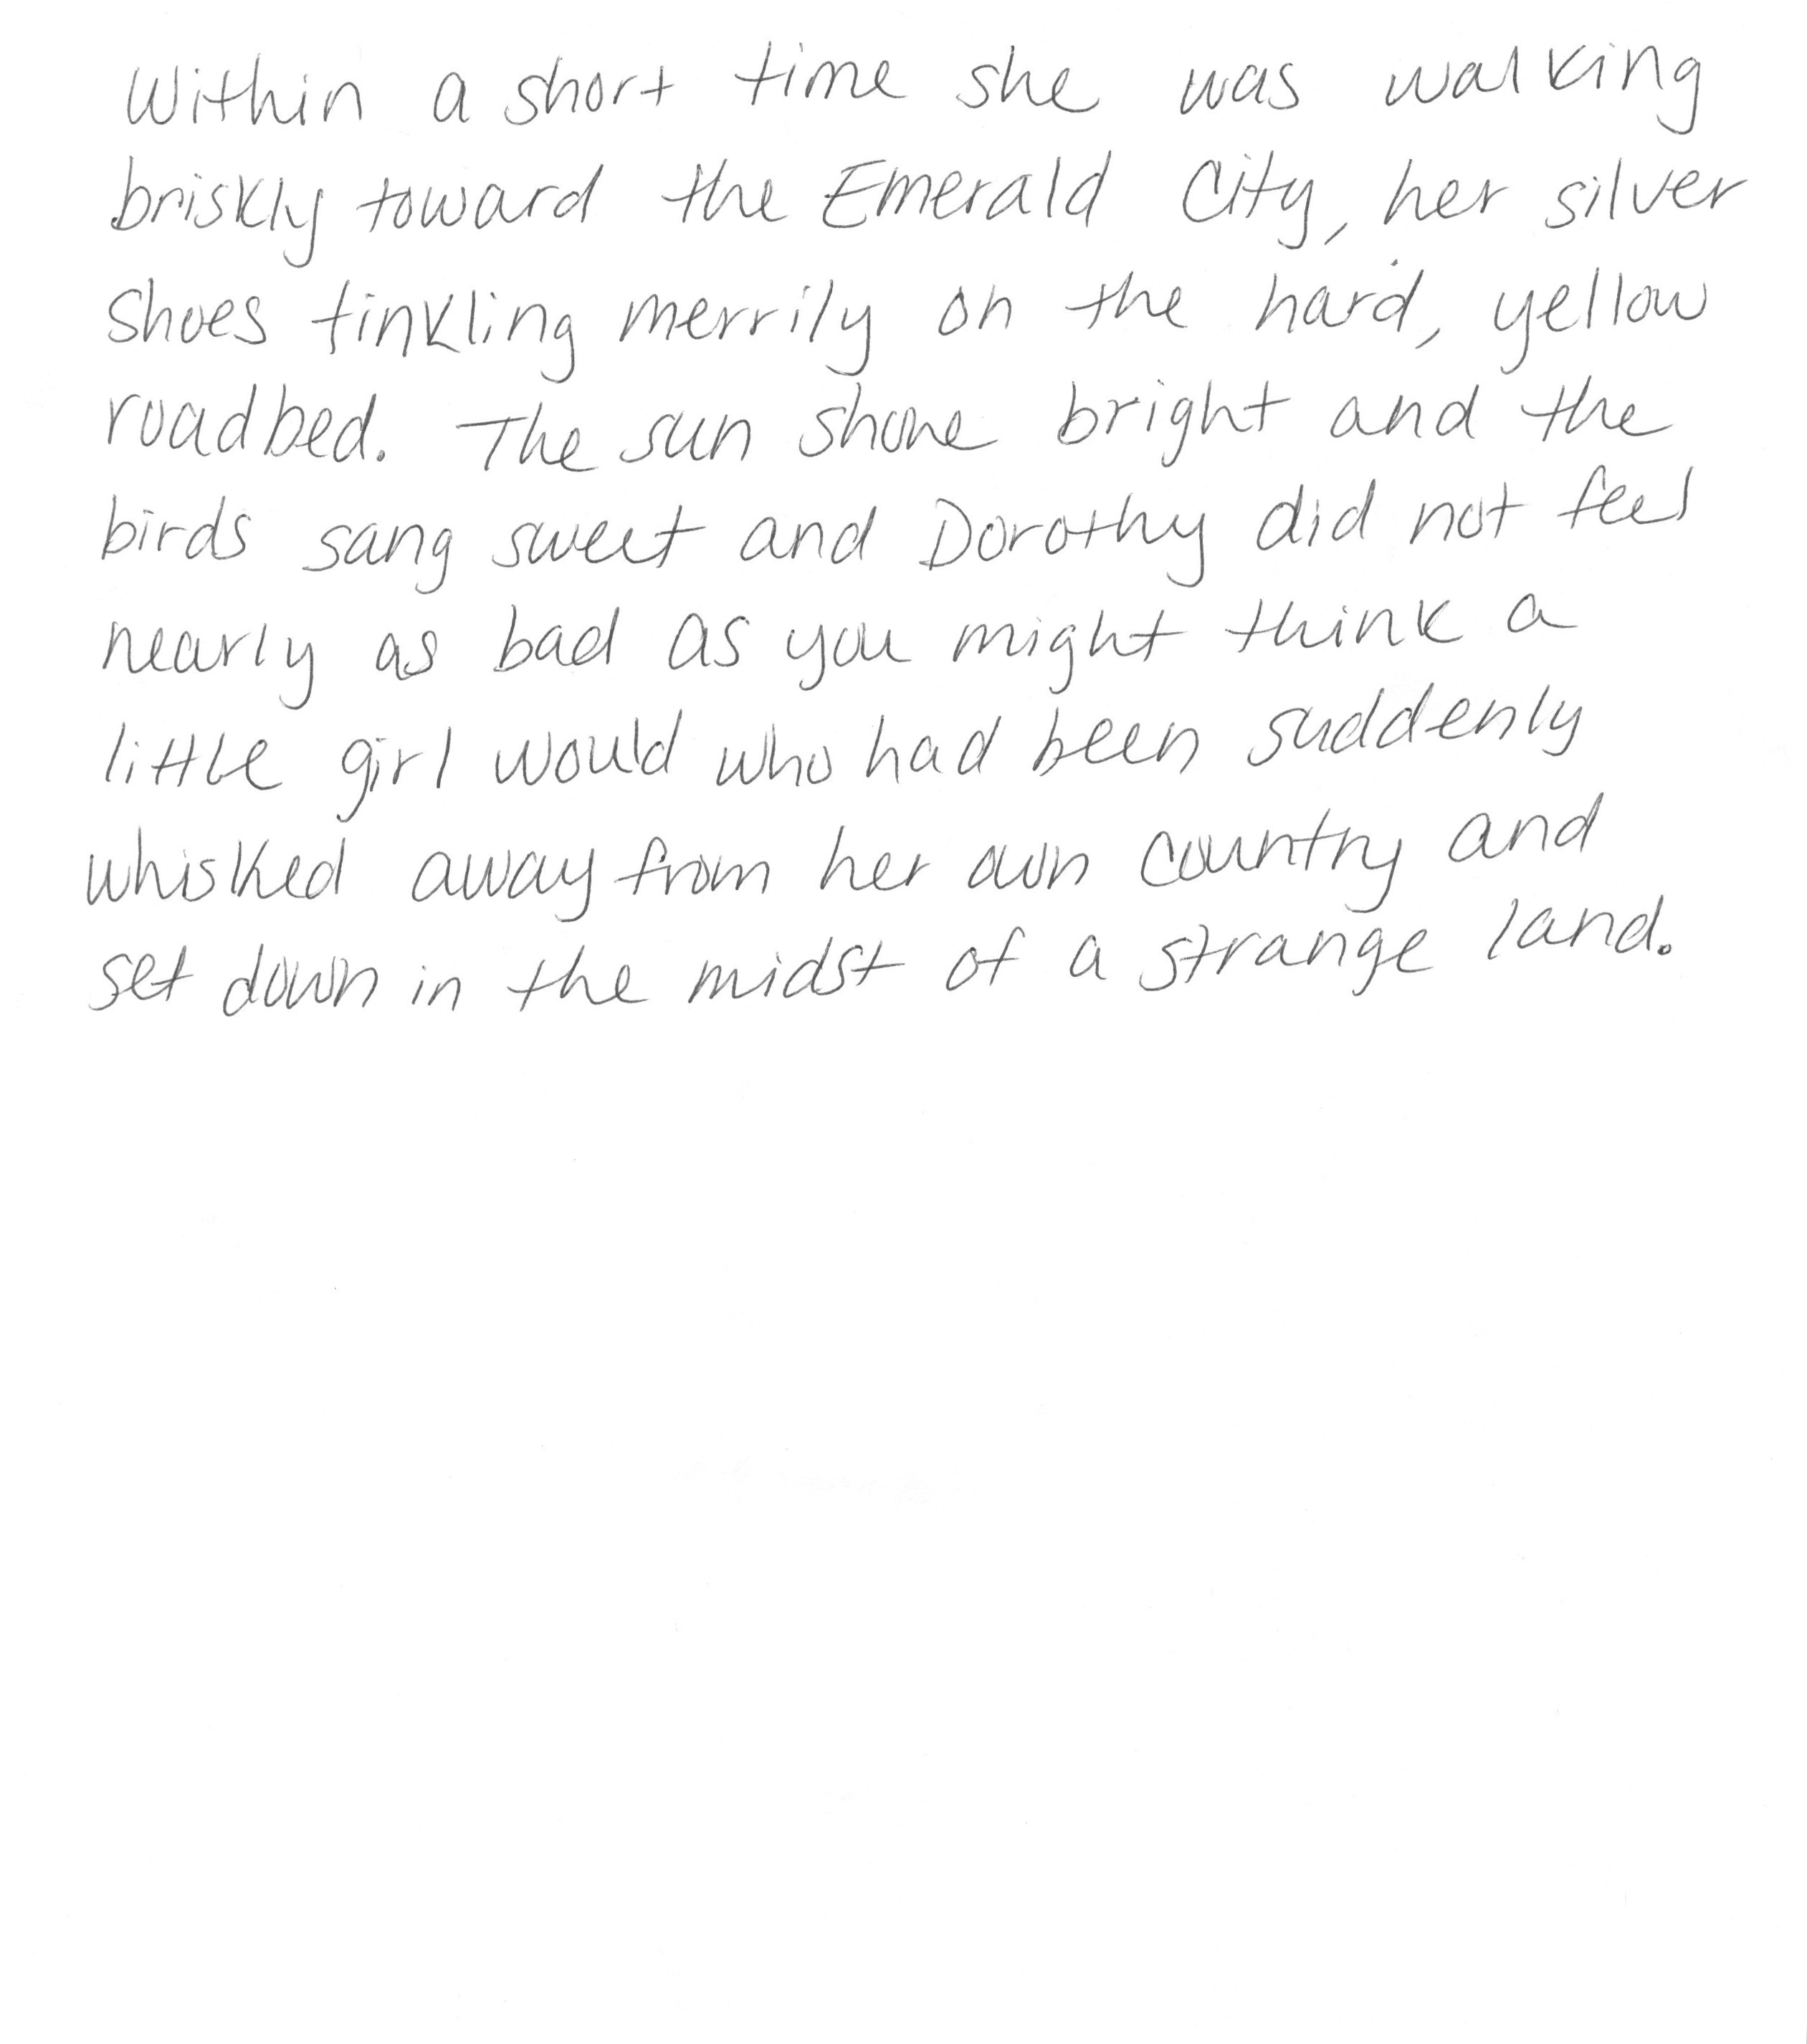 Within a short time she was walking
briskly toward the Emerald City, her silver
shoes tinkling merrily on the hard, yellow
roadbed. The sun shone bright and the
birds sang sweet and Dorothy did not feel
nearly as bad as you might think a
little girl would who had been suddenly
whisked away from her own country and
set down in the midst of a strange land.